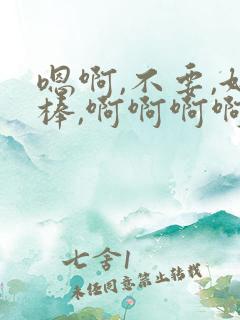 嗯啊,不要,好
棒,啊啊啊啊
七舍1
未经同意禁止转载